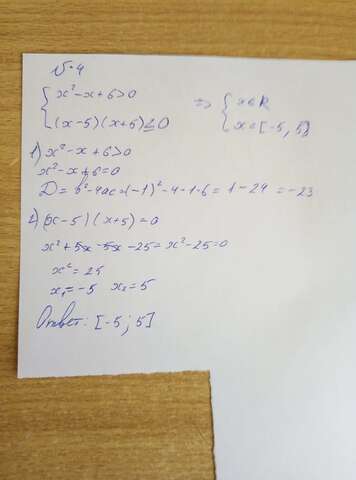 №4
{ x² - x + 6 > 0
(x-5)(x+5) ≤ 0
=> { x ∈ R
x ∈ [-5, 5]
1) x² - x + 6 > 0
x² - x + 6 = 0
D = b² - 4ac = (-1)² - 4·1·6 = 1 - 24 = -23
2) (x-5)(x+5) = 0
x² + 5x - 5x - 25 = x² - 25 = 0
x² = 25
x₁ = -5 x₂ = 5
Ответ: [-5; 5]